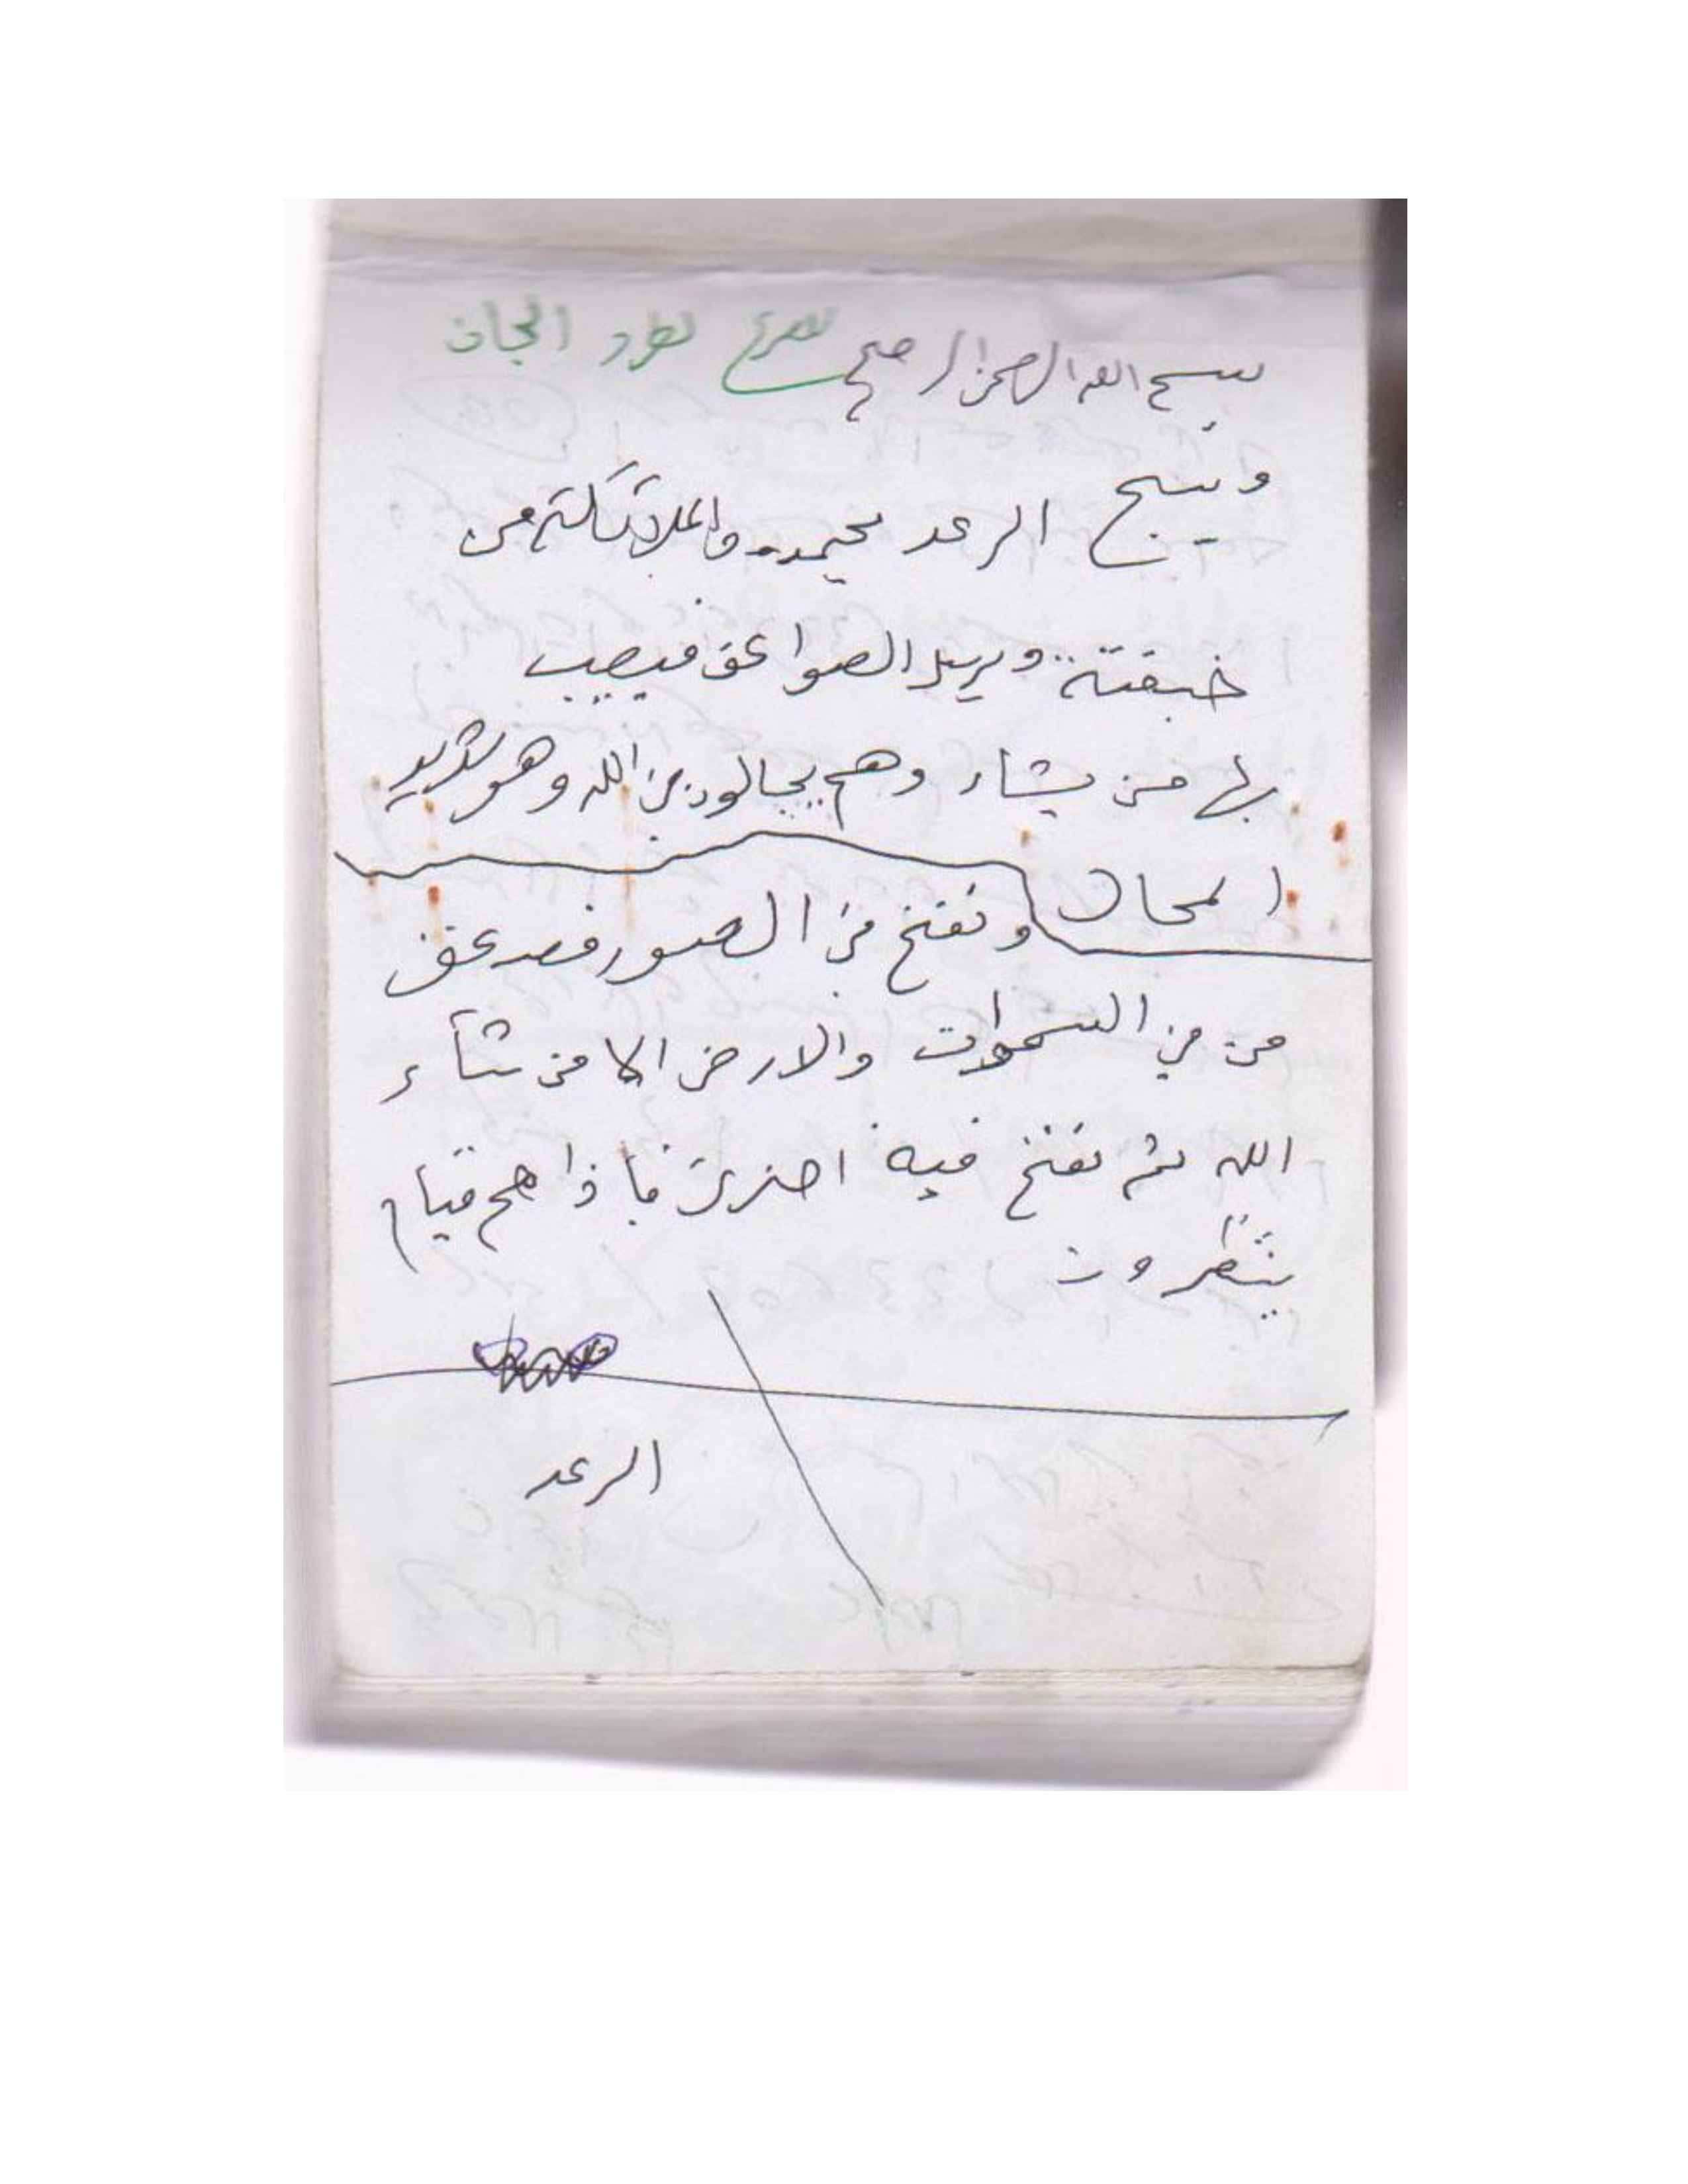 للصرع لطرد الجان
بسم الله الرحمن الرحيم
ويسبح الرعد بحمده والملائكة من
خيفتة ويرسل الصواعق فيصيب
بها من يشاء وهم يجالدون في الله وهو شديد
المحال ونفخ في الصور فصعق
من في السموات والارض الا من شآء
الله ثم نفخ فيه اخرى فاذا هم قيام
ينظرون
الرعد